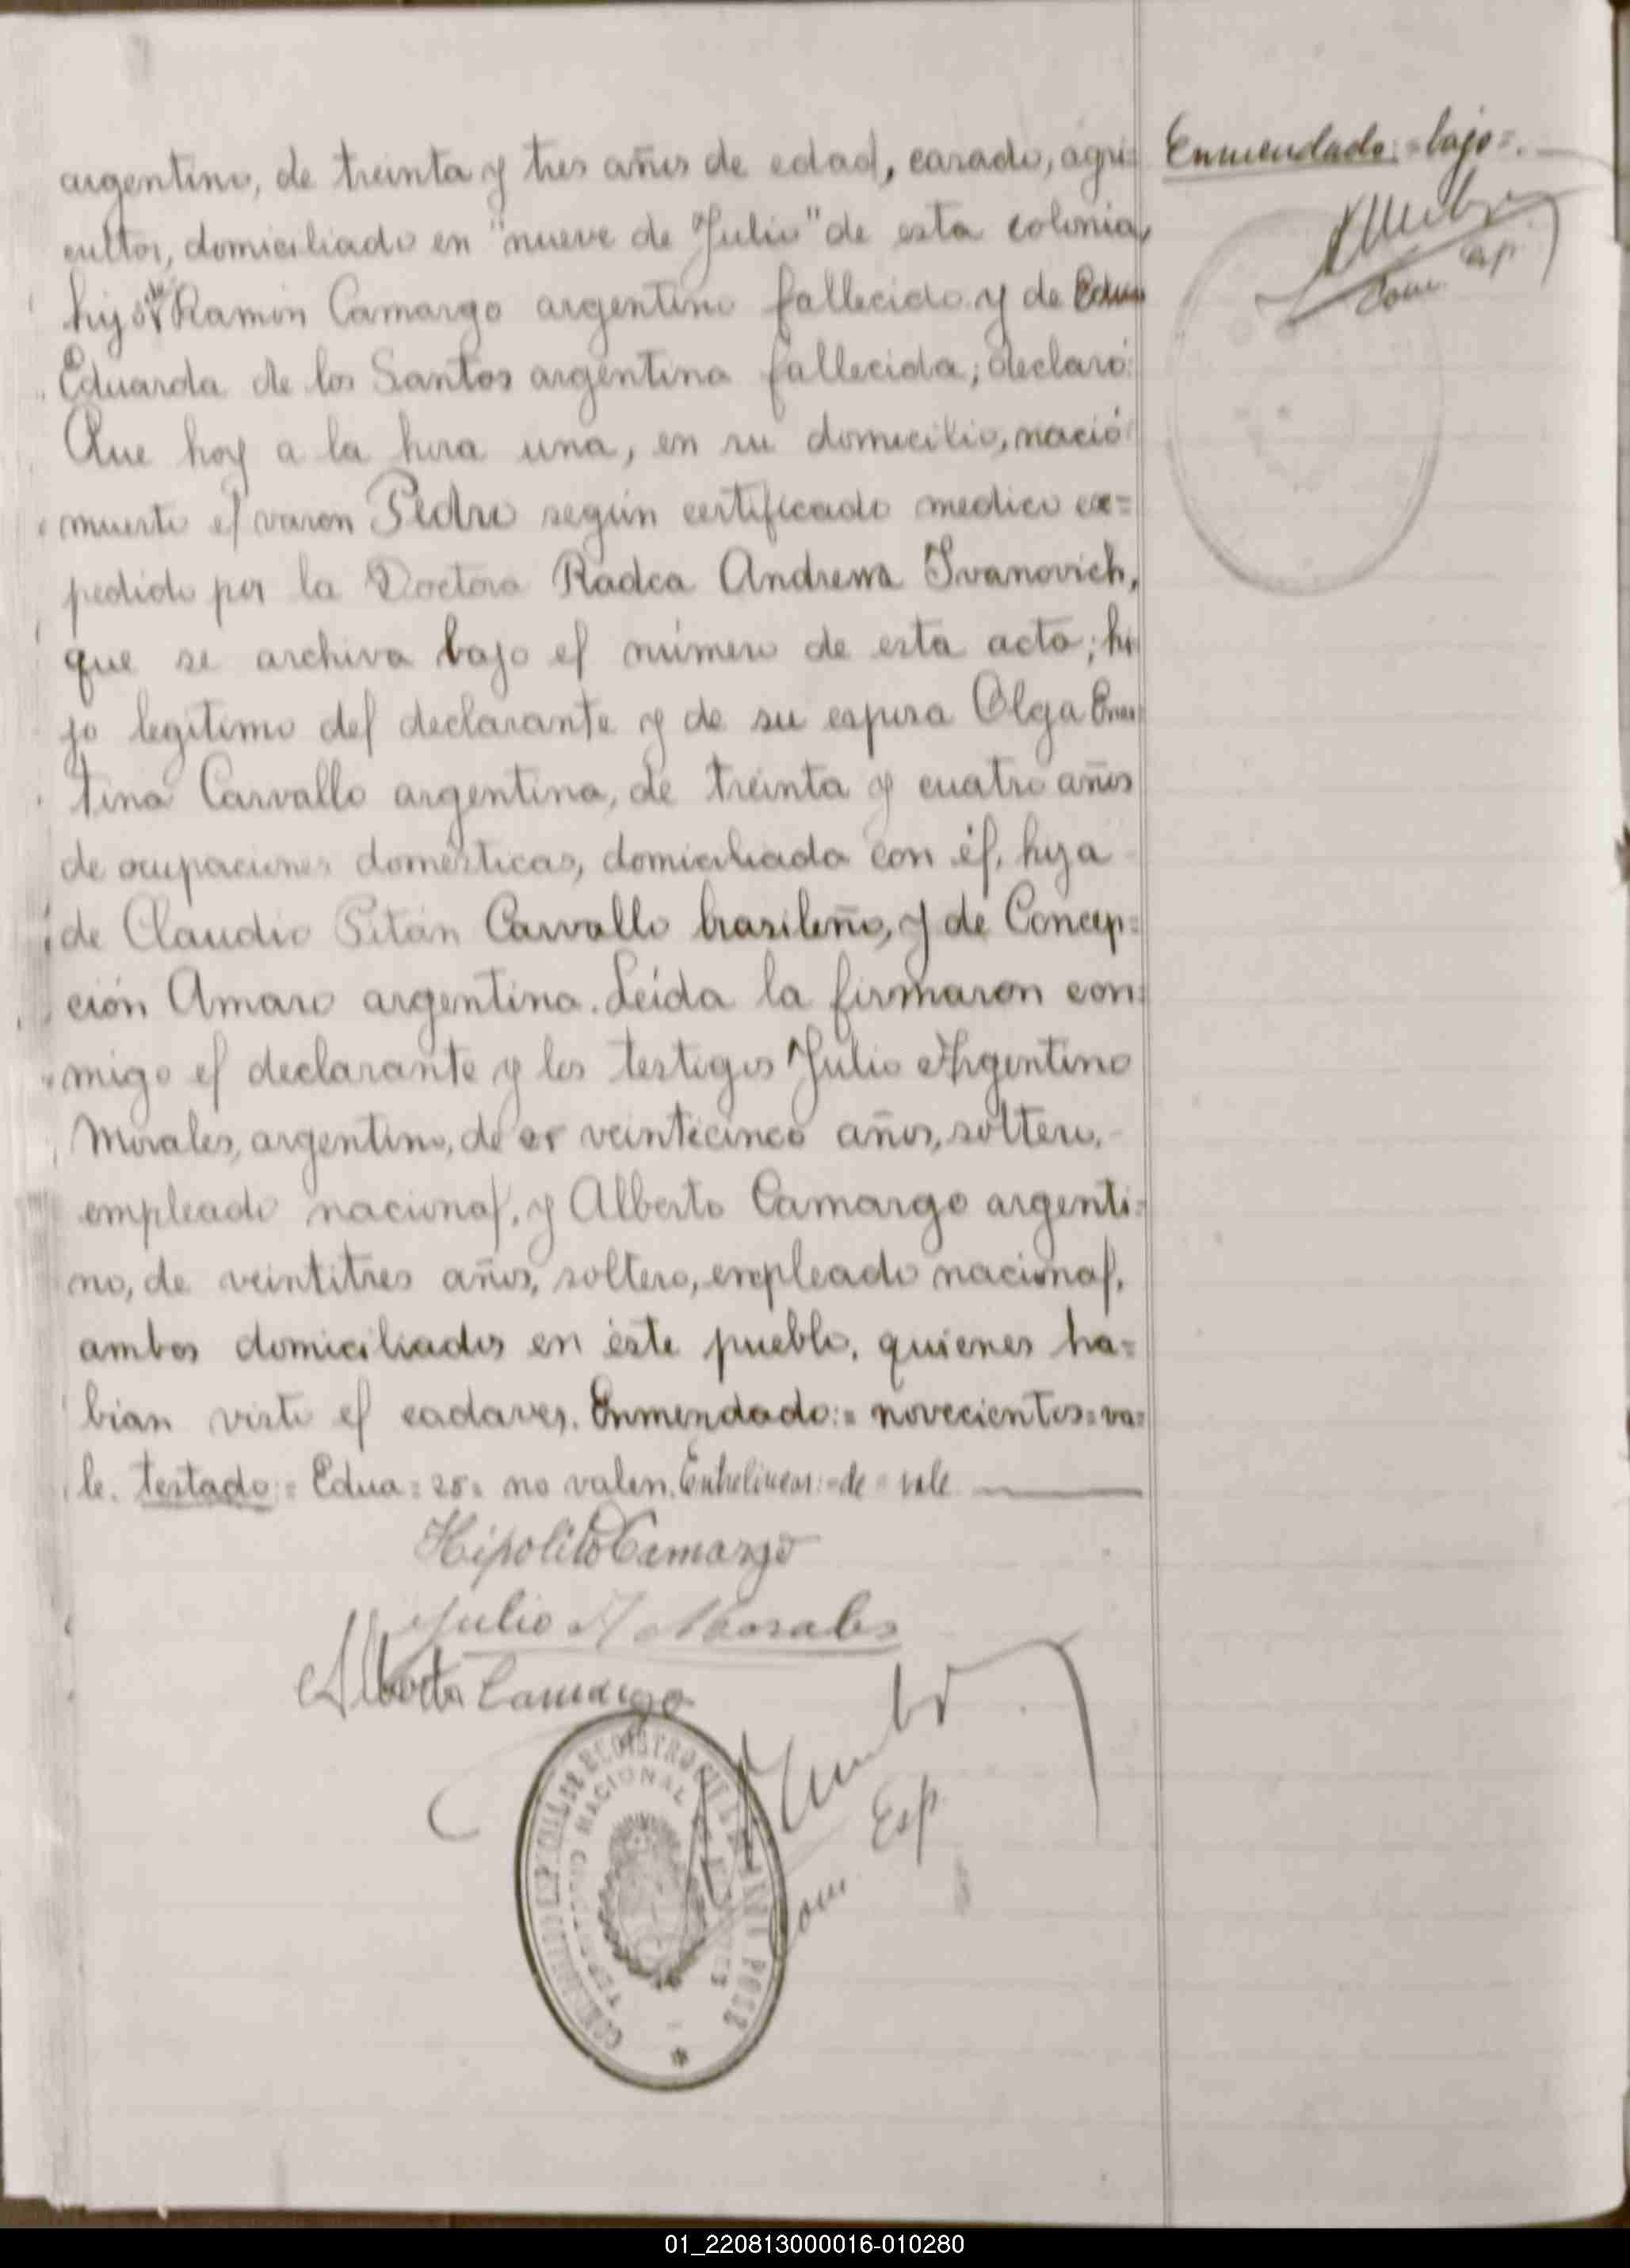 argentino, de treinta y tres años de edad, casado, agri=
cultor, domiciliado en "nueve de Julio" de esta colonia,
hijo de Ramón Camargo argentino fallecido y de Edua
Eduarda de los Santos argentina fallecida; declaró:
Que hoy a la hora una, en su domicilio, nació
muerto el varon Pedro según certificado medico ex=
pedido por la Doctora Radca Andrewa Ivanovich,
que se archiva bajo el número de esta acta; hi
jo legítimo del declarante y de su esposa Olga Ernes
tina Carvallo argentina, de treinta y cuatro años
de ocupaciones domésticas, domiciliada con él, hija
de Claudio Pitán Carvallo brasileño, y de Concep=
ción Amaro argentina. Leída la firmaron con=
migo el declarante y los testigos Julio Argentino
Morales, argentino, de 25 veinticinco años, soltero,
empleado nacional, y Alberto Camargo argenti=
no, de veintitres años, soltero, empleado nacional,
ambos domiciliados en éste pueblo, quienes ha=
bían visto el cadaver. Enmendado:= novecientos=va=
le. testado= Edua= 25= no valen. Entrelineas:=de= vale
Enmendado:=bajo=.
Com. Esp.
Hipolito Camargo
Julio A Morales
Alberto Camargo
Com Esp
REGISTRO CIVIL
TERRITORIO NACIONAL DE MISIONES